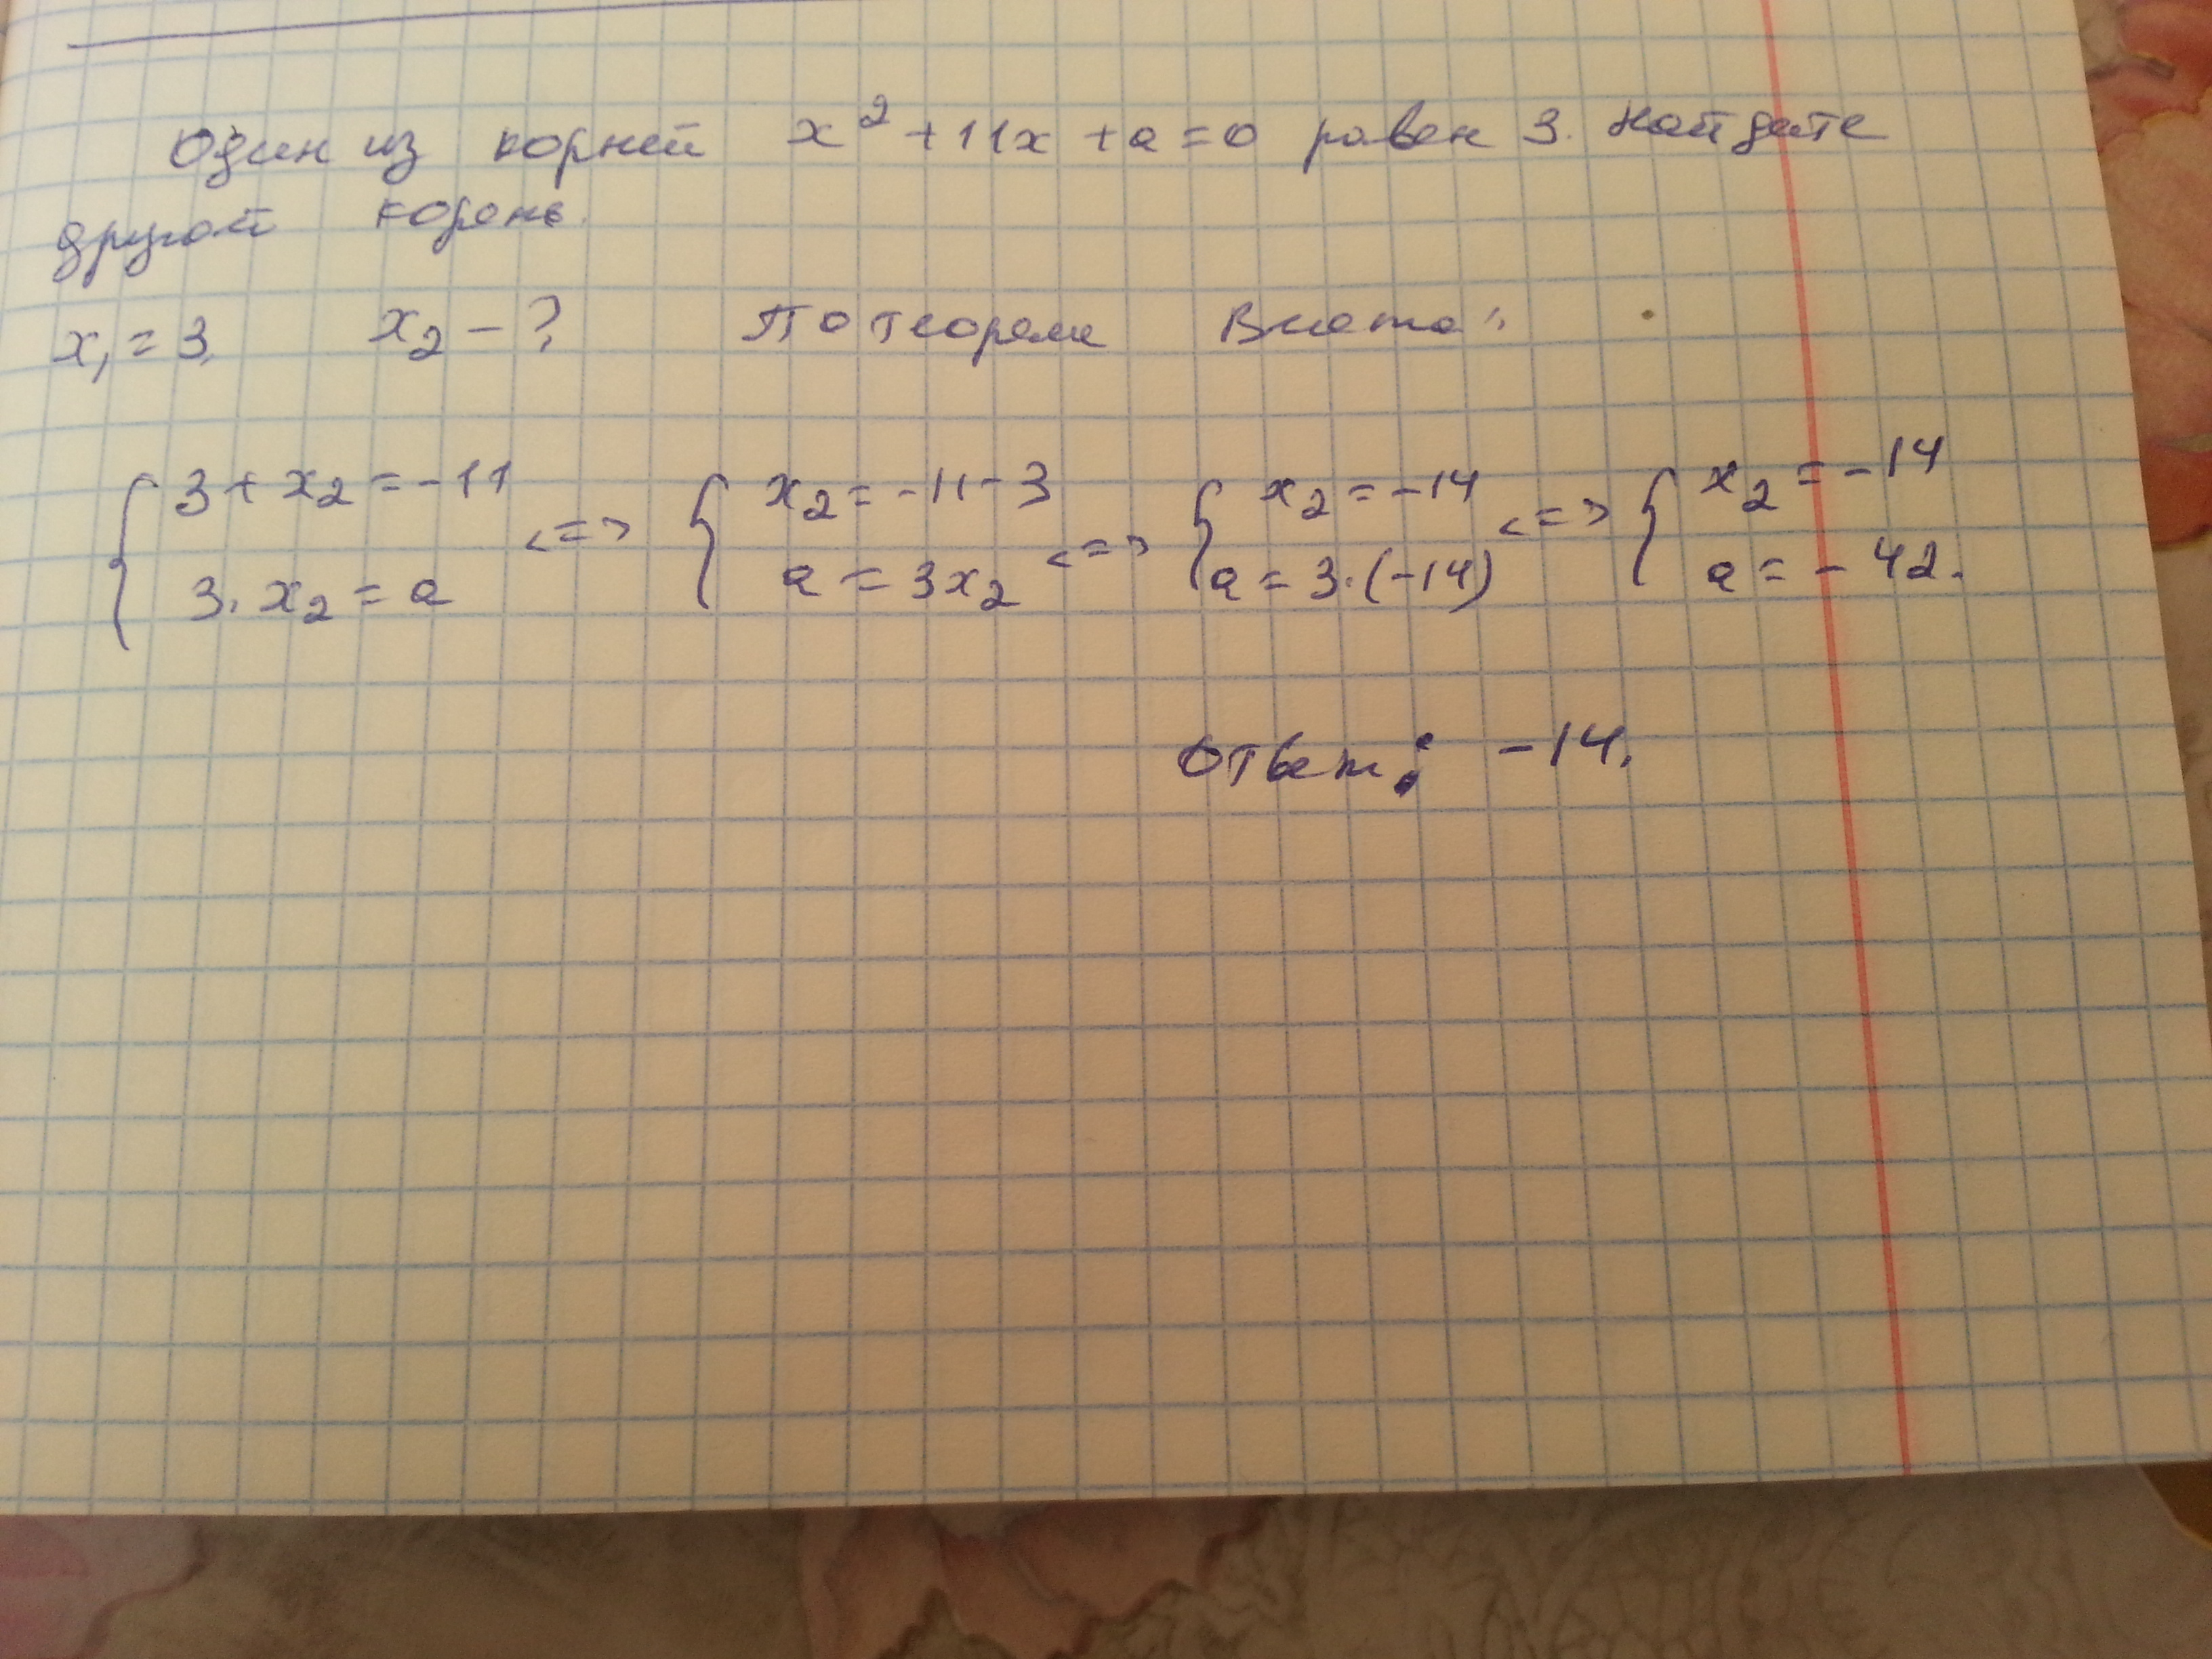 Один из корней x² + 11x + a = 0 равен 3. Найдите
другой корень.
x₁ = 3, x₂ - ? По теореме Виета:
{ 3 + x₂ = -11 <=> { x₂ = -11 - 3 <=> { x₂ = -14 <=> { x₂ = -14
3 · x₂ = a a = 3x₂ a = 3·(-14) a = -42.
Ответ: -14.